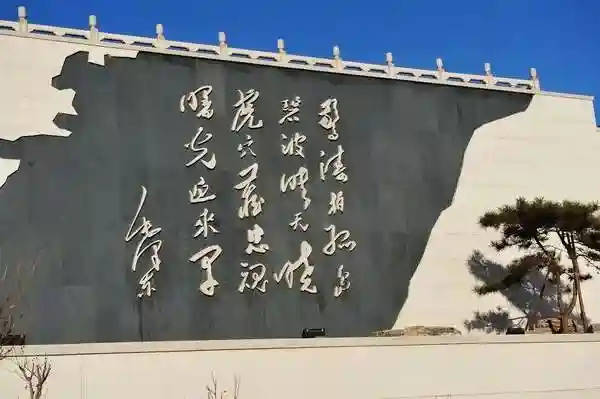 驚涛拍孤岛
碧波映天晓
虎穴藏忠魂
曙光迎来早
毛泽东